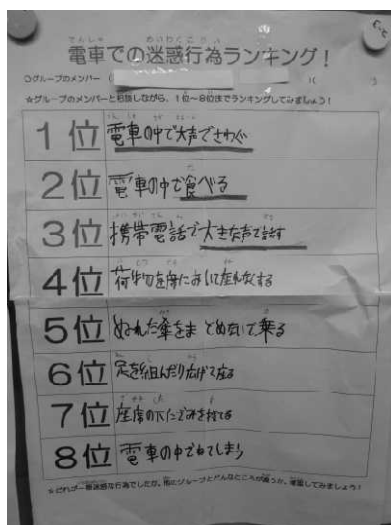 電車での迷惑行為ランキング！
□グループのメンバー（
☆グループのメンバーと相談しながら、1位～8位までランキングしてみましょう！
1位 電車の中で大声でさわぐ
2位 電車の中で食べる
3位 携帯電話で大きな声で話す
4位 荷物を席において座れなくする
5位 ぬれた傘をまとめないで乗る
6位 足を組んだり広げて座る
7位 座席の下にごみを捨てる
8位 電車の中でねてしまう
☆どれが一番迷惑な行為でしたか。他のグループとどんなところが違うか、確認してみましょう！